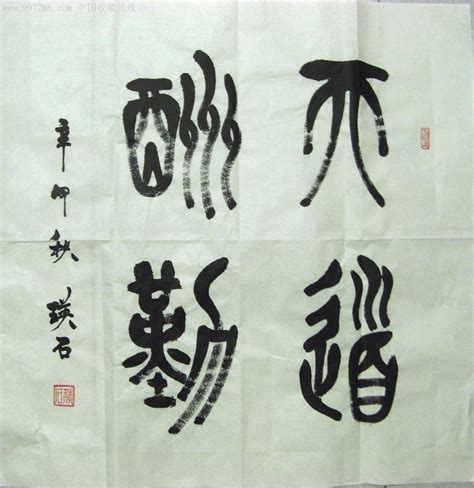 www.997788.com 中国收藏热线
天道
酬勤
辛卯秋 瑛石